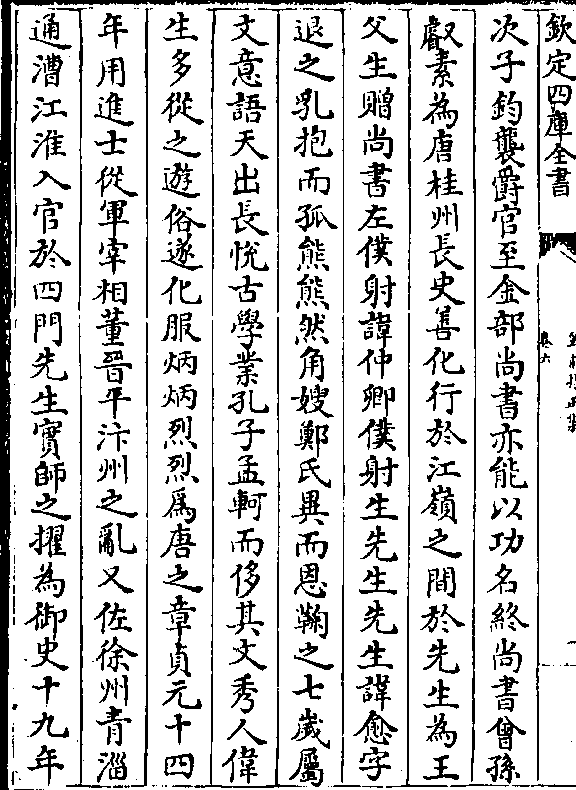 欽定四庫全書
卷六
次子鈞襲爵官至金部尚書亦能以功名終尚書曾孫
叡素為唐桂州長史善化行於江嶺之間於先生為王
父生贈尚書左僕射諱仲卿僕射生先生先生諱愈字
退之乳抱而孤熊熊然角嫂鄭氏異而恩鞠之七歲屬
文意語天出長悅古學業孔子孟軻而侈其文秀人偉
生多從之遊俗遂化服炳炳烈烈爲唐之章貞元十四
年用進士從軍宰相董晉平汴州之亂又佐徐州青淄
通漕江淮入官於四門先生實師之擢為御史十九年